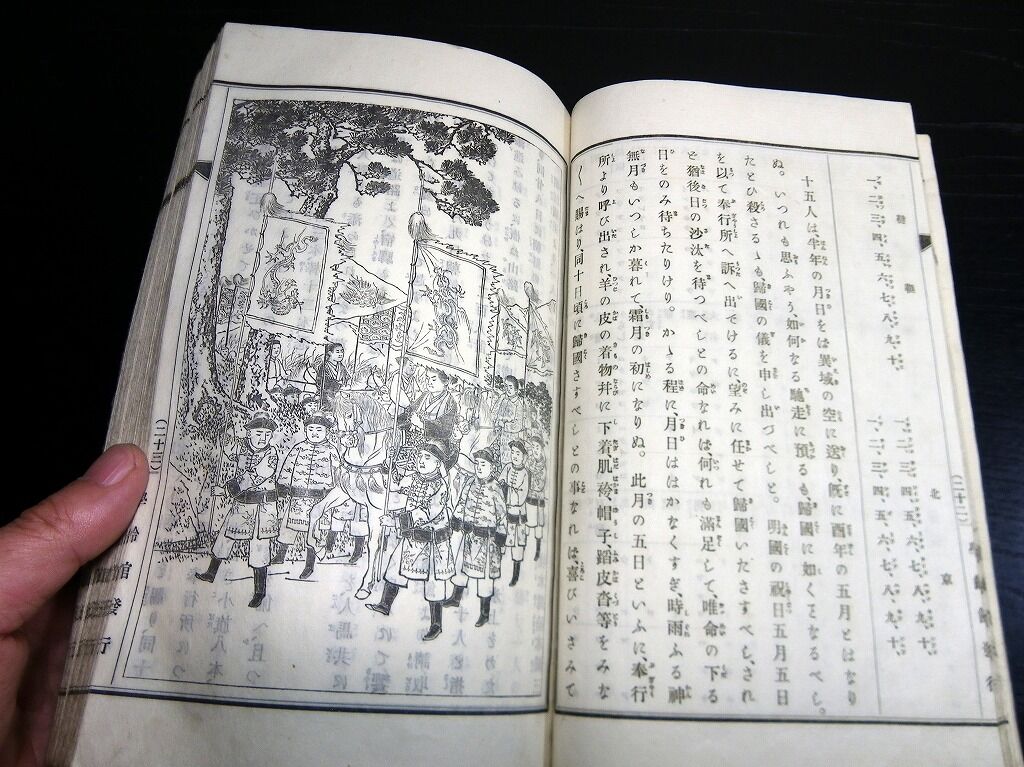 韃靼
北京
一、二、三、四、五、六、七、八、九、十、
一、二、三、四、五、六、七、八、九、十、
十五人は、半年の月日をは異域の空に送り、既に酉年の五月とはなり
ぬ。いつれも思ふやう、如何なる馳走に預るも、歸國に如くことなるべし。
たとひ殺さるゝも、歸國の儀を申し出づべしと。明國の祝日五月五日
を以て奉行所へ訴へ出でけるに、望みに任せて歸國いたさすべし、され
ど猶後日の沙汰を待つべしとの命なれは、何れも滿足して、唯命の下る
日をのみ待ちたりけり。かゝる程に、月日ははかなくすぎ、時雨ふる神
無月もいつしか暮れて、霜月の初になりぬ。此月の五日といふに、奉行
所より呼び出され、羊の皮の着物幷に下着、肌袴、帽子、踏皮沓等をみな
〱へ賜はり、同十日頃に歸國さすべしとの事なれは、喜びいさみて
(二十二)
(二十三)
館發行